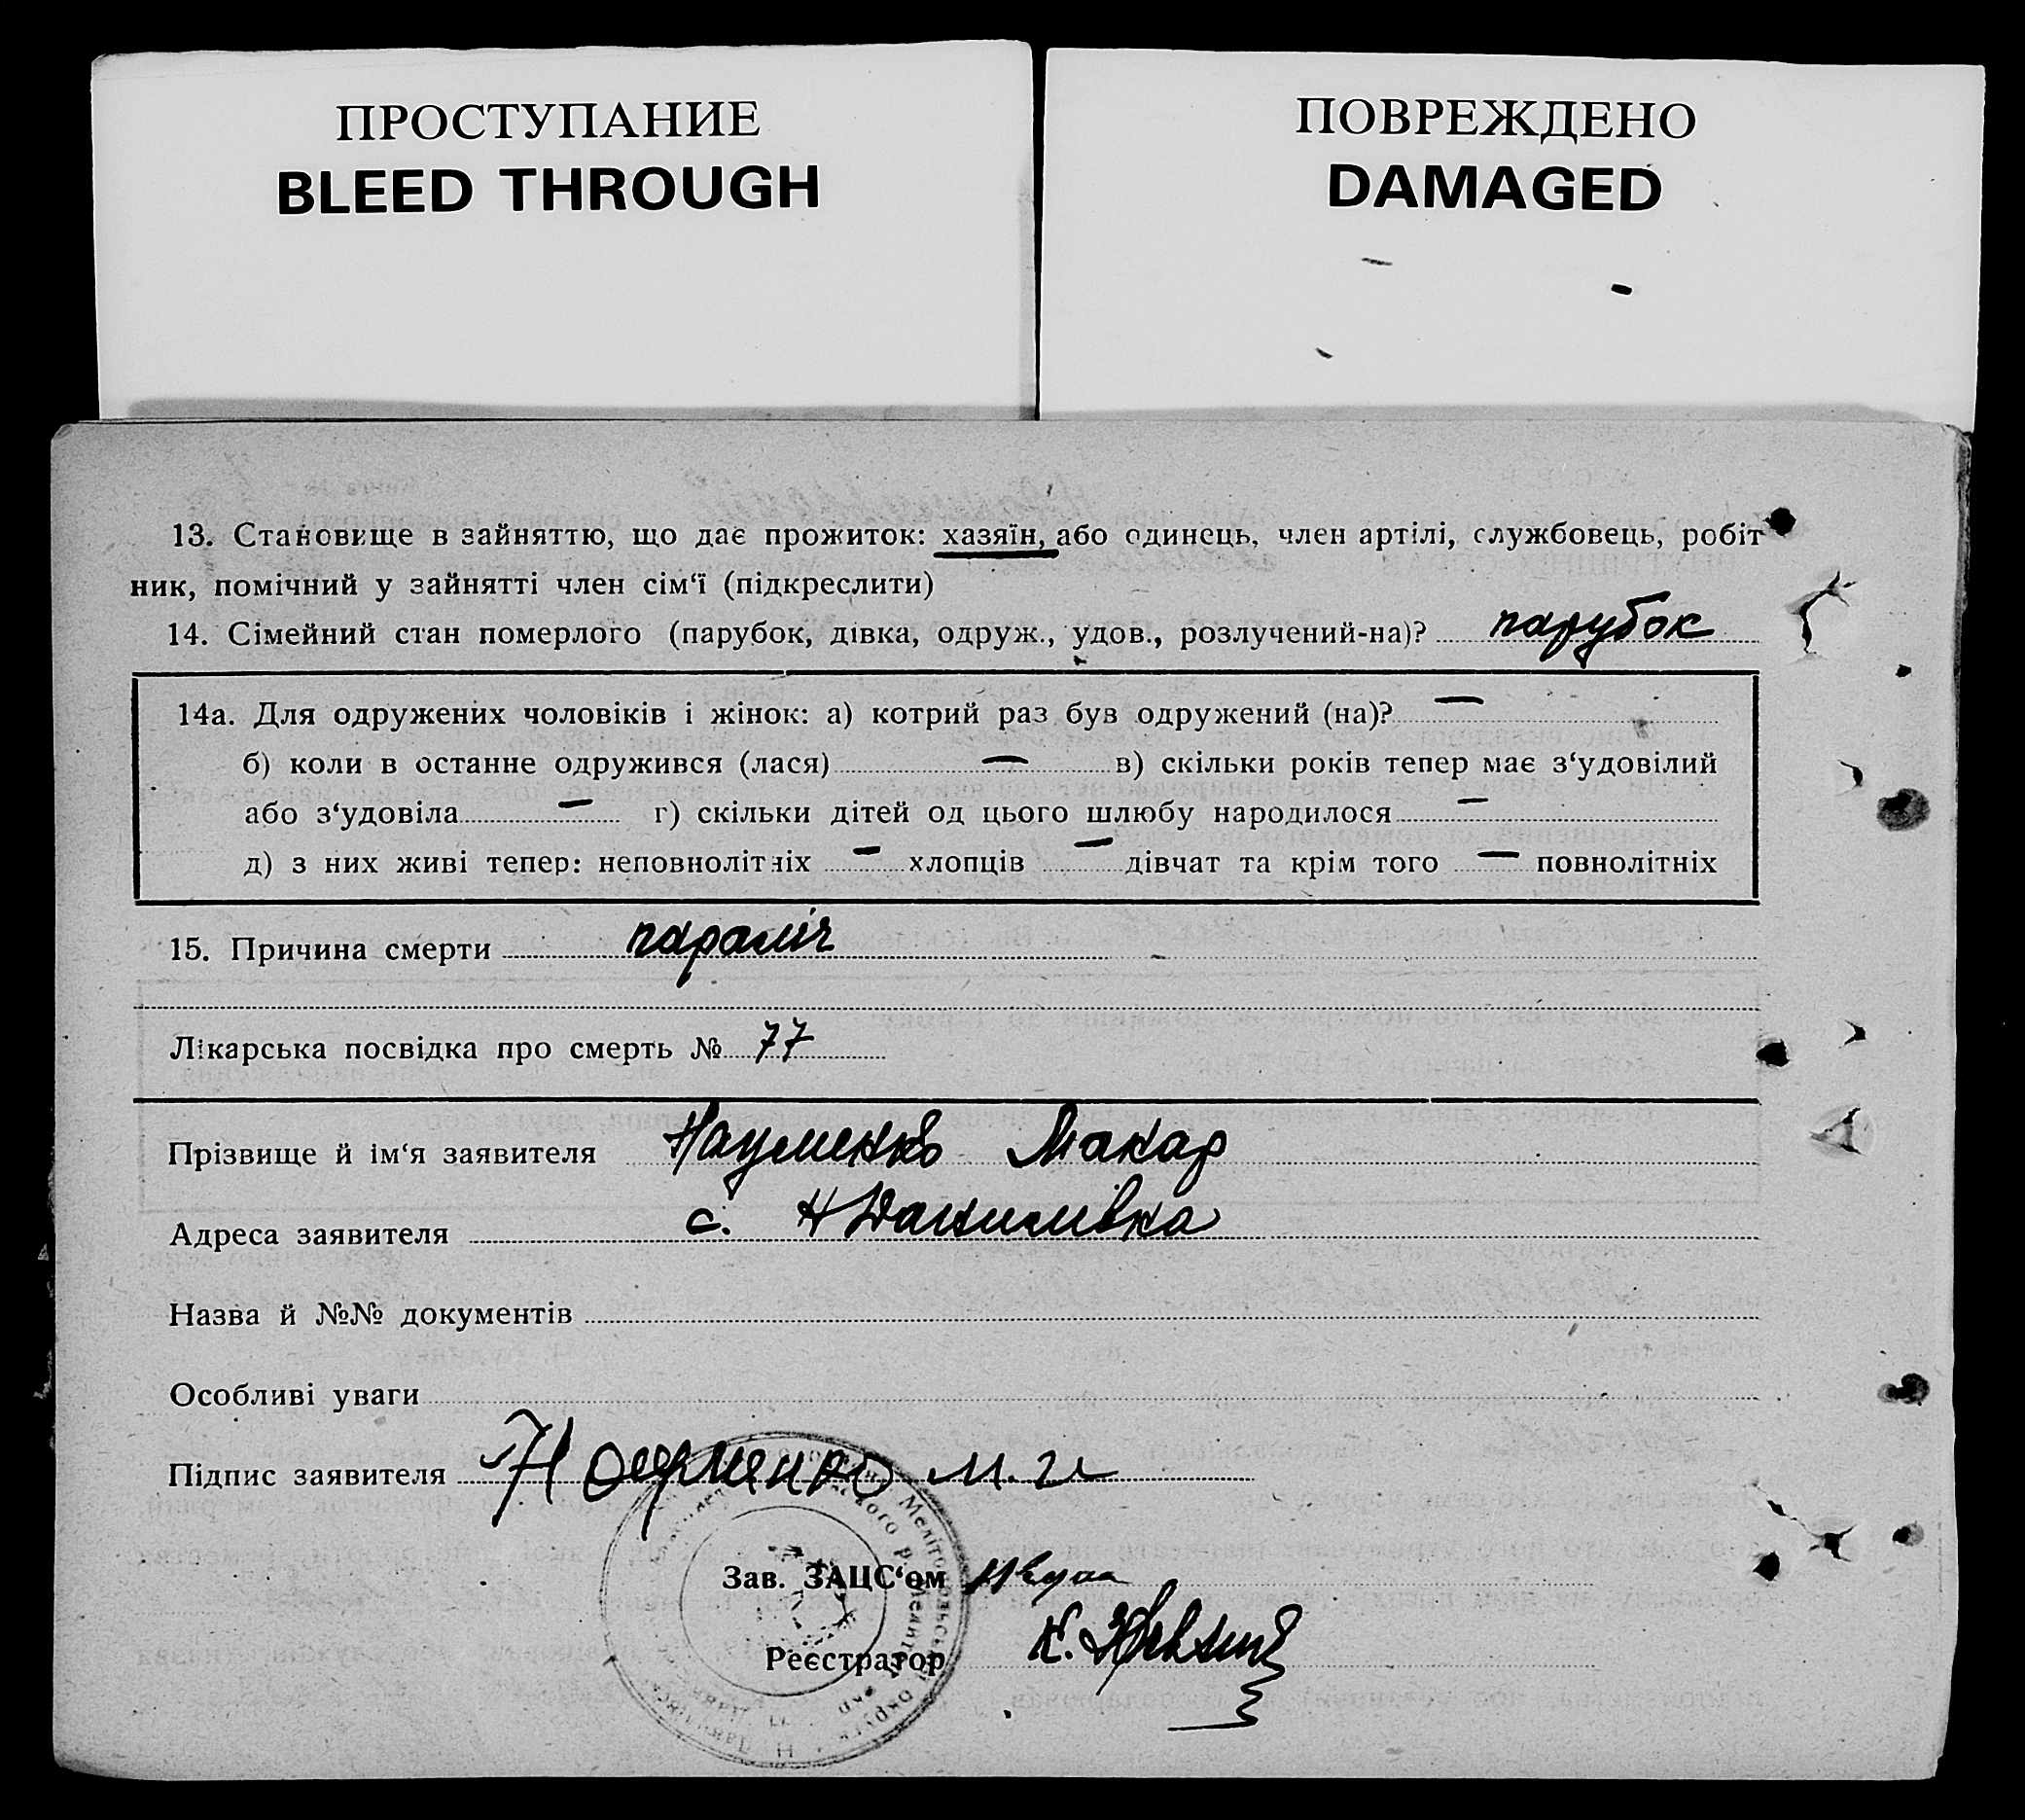 ПРОСТУПАНИЕ
BLEED THROUGH
ПОВРЕЖДЕНО
DAMAGED
13. Становище в зайняттю, що дає прожиток: хазяїн, або одинець, член артілі, службовець, робіт
ник, помічний у зайнятті член сім‘ї (підкреслити)
14. Сімейний стан померлого (парубок, дівка, одруж., удов., розлучений-на)? парубок
14а. Для одружених чоловіків і жінок: а) котрий раз був одружений (на)? —
б) коли в останне одружився (лася) — в) скільки років тепер має з‘удовілий
або з‘удовіла — г) скільки дітей од цього шлюбу народилося —
д) з них живі тепер: неповнолітніх — хлопців — дівчат та крім того — повнолітніх
15. Причина смерти параліч
Лікарська посвідка про смерть № 77
Прізвище й ім‘я заявителя Науменко Макар
Адреса заявителя с. Н Данилівка
Назва й №№ документів
Особливі уваги
Підпис заявителя Науменко М. И
Зав. ЗАЦС‘ом
Реєстратор К.